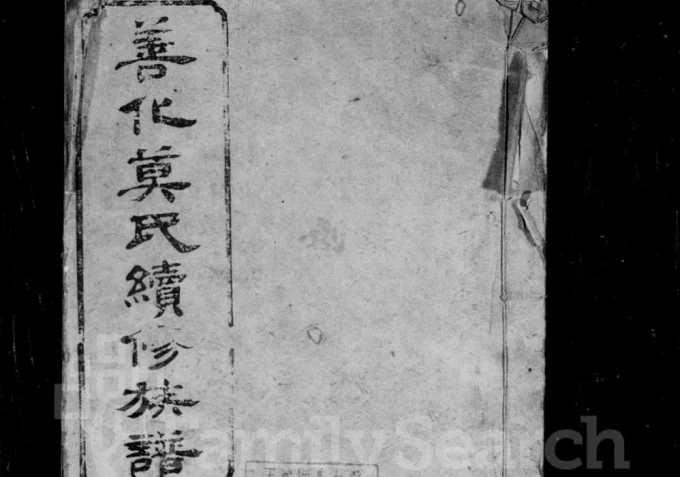 善化莫氏續修族譜
FamilySearch